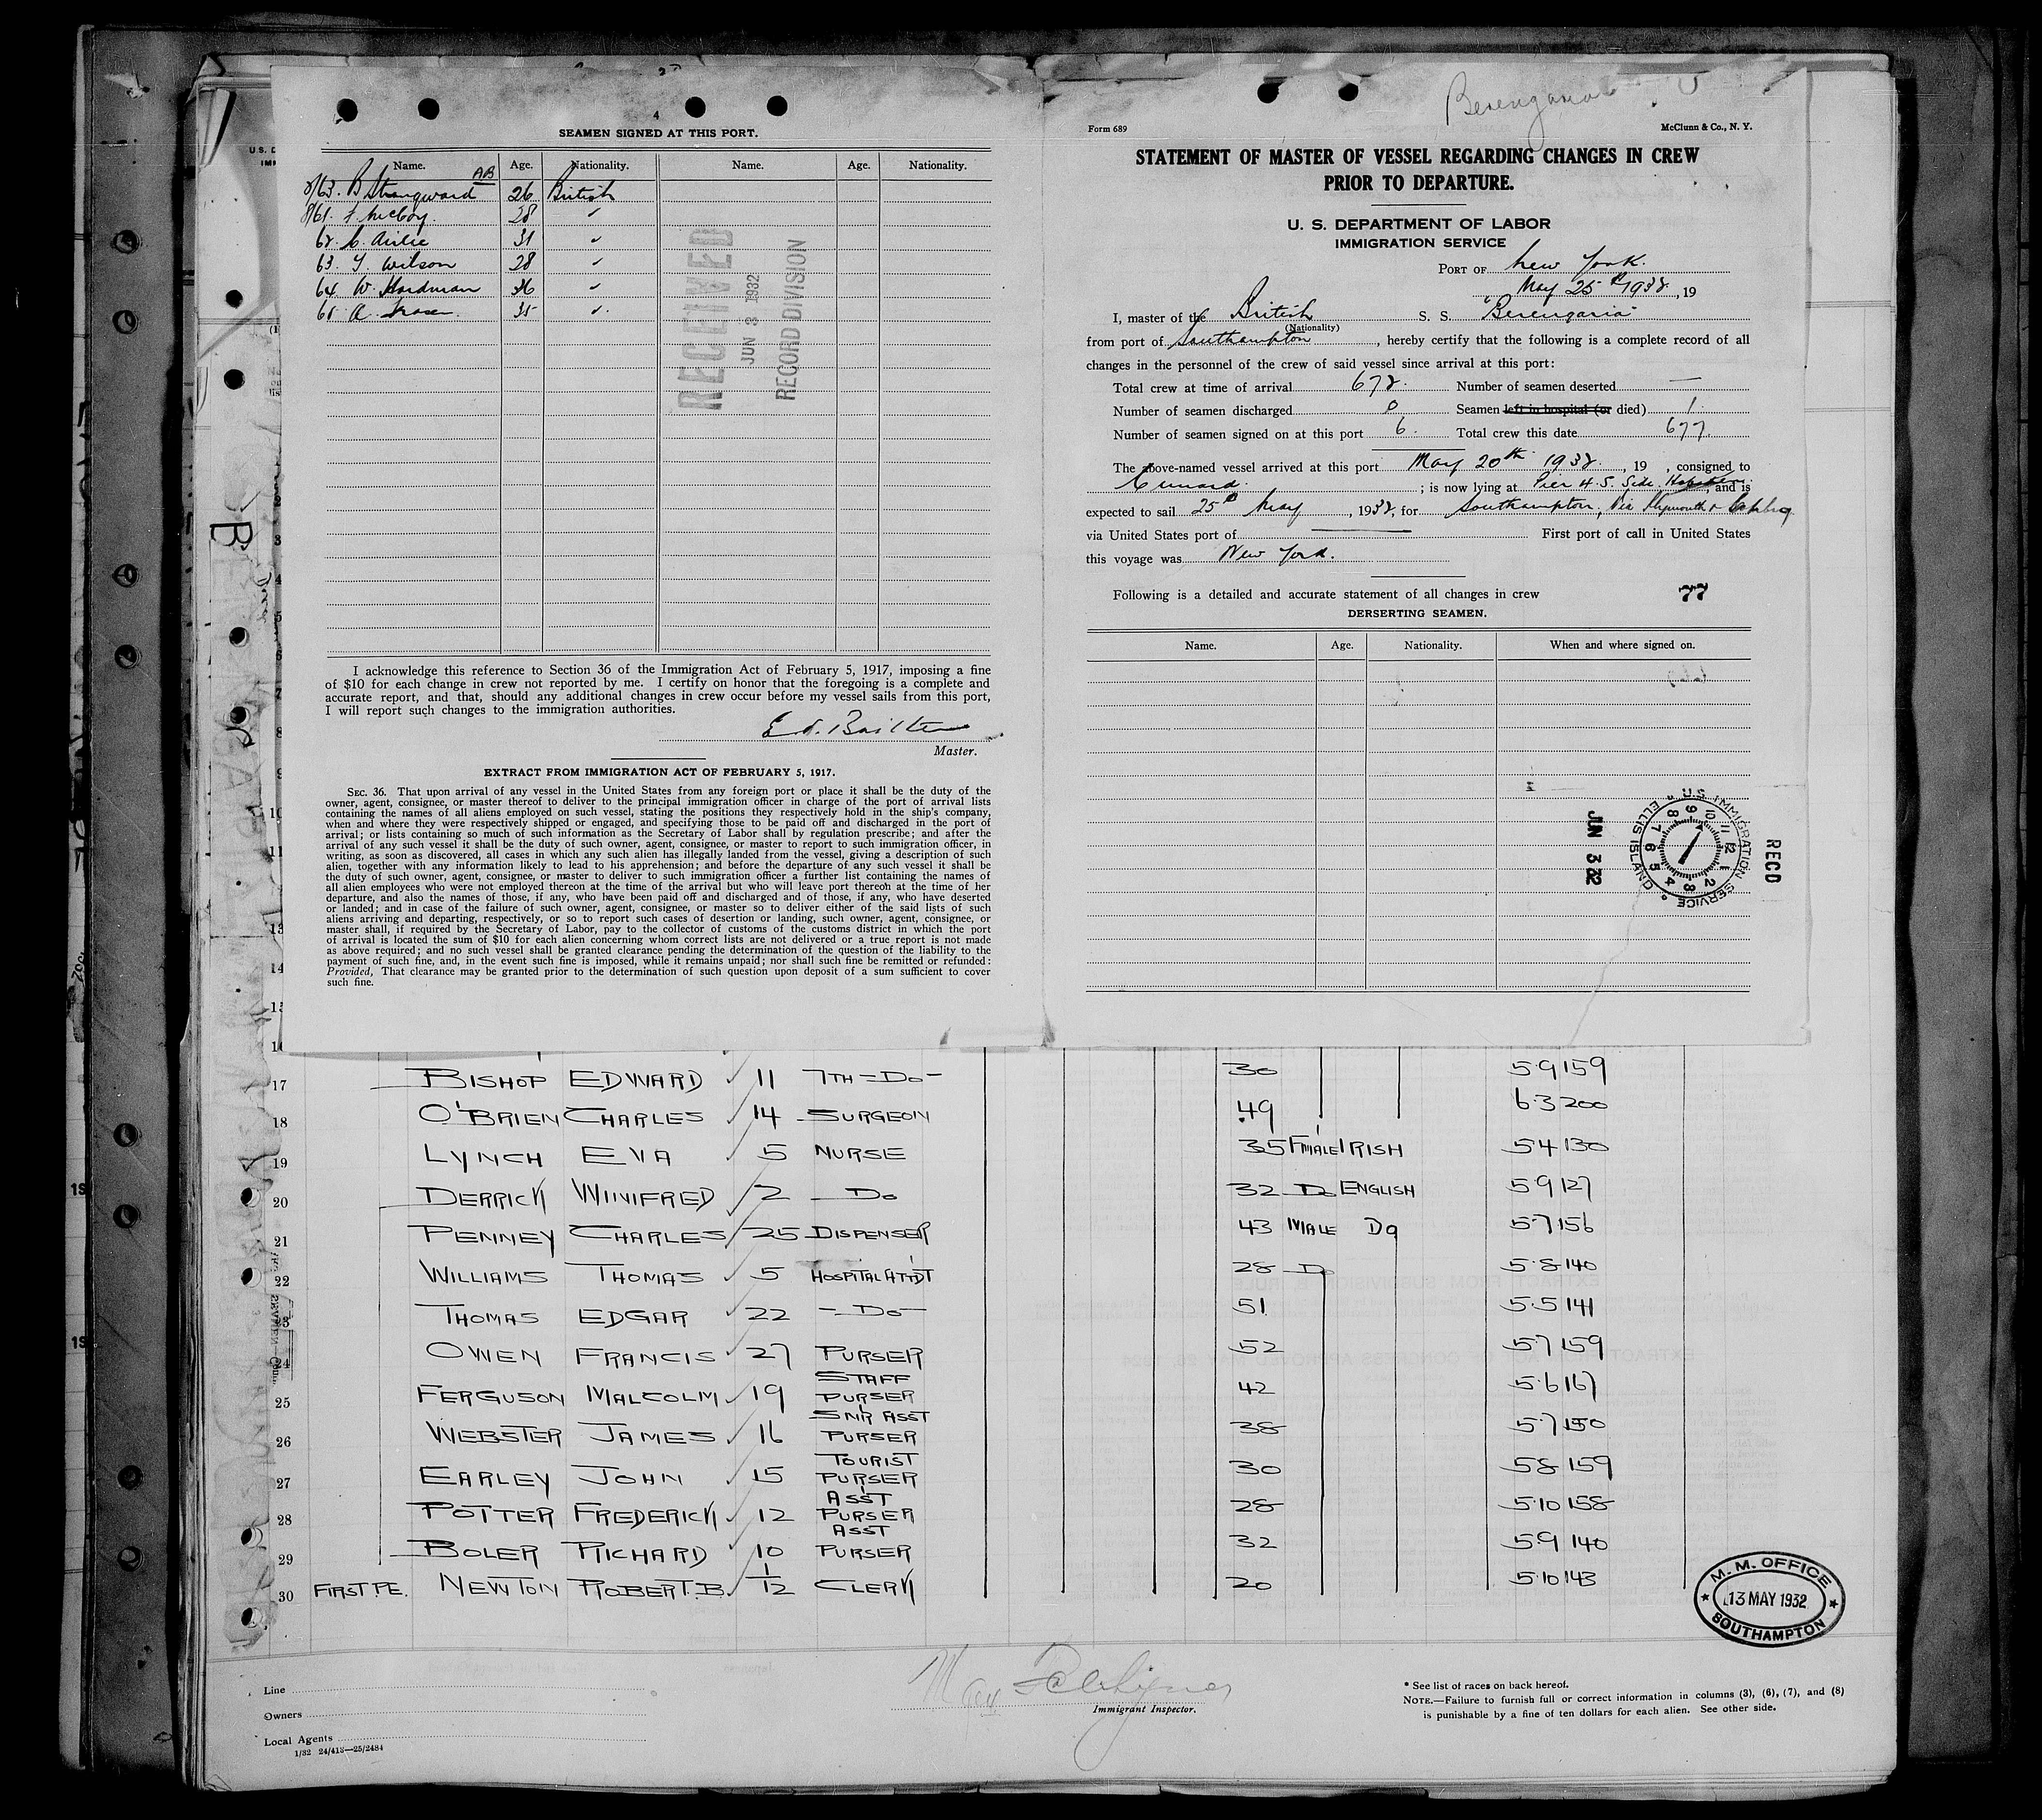 4
SEAMEN SIGNED AT THIS PORT.
Name. Age. Nationality. Name. Age. Nationality.
AB
8/63. B Strangward 26 British
8/61. F. McCoy. 28 "
62. C. Airlie 31 "
63. Wilson 28 "
64. W. Hardman 36 "
65 A. Fraser. 35 "
RECEIVED
JUN 3 1932
RECORD DIVISION
I acknowledge this reference to Section 36 of the Immigration Act of February 5, 1917, imposing a fine
of $10 for each change in crew not reported by me. I certify on honor that the foregoing is a complete and
accurate report, and that, should any additional changes in crew occur before my vessel sails from this port,
I will report such changes to the immigration authorities.
Master.
EXTRACT FROM IMMIGRATION ACT OF FEBRUARY 5, 1917.
SEC. 36. That upon arrival of any vessel in the United States from any foreign port or place it shall be the duty of the
owner, agent, consignee, or master thereof to deliver to the principal immigration officer in charge of the port of arrival lists
containing the names of all aliens employed on such vessel, stating the positions they respectively hold in the ship's company,
when and where they were respectively shipped or engaged, and specifying those to be paid off and discharged in the port of
arrival; or lists containing so much of such information as the Secretary of Labor shall by regulation prescribe; and after the
arrival of any such vessel it shall be the duty of such owner, agent, consignee, or master to report to such immigration officer, in
writing, as soon as discovered, all cases in which any such alien has illegally landed from the vessel, giving a description of such
alien, together with any information likely to lead to his apprehension; and before the departure of any such vessel it shall be
the duty of such owner, agent, consignee, or master to deliver to such immigration officer a further list containing the names of
all alien employees who were not employed thereon at the time of the arrival but who will leave port thereon at the time of her
departure, and also the names of those, if any, who have been paid off and discharged and of those, if any, who have deserted
or landed; and in case of the failure of such owner, agent, consignee, or master so to deliver either of the said lists of such
aliens arriving and departing, respectively, or so to report such cases of desertion or landing, such owner, agent, consignee, or
master shall, if required by the Secretary of Labor, pay to the collector of customs of the customs district in which the port
of arrival is located the sum of $10 for each alien concerning whom correct lists are not delivered or a true report is not made
as above required; and no such vessel shall be granted clearance pending the determination of the question of the liability to the
payment of such fine, and, in the event such fine is imposed, while it remains unpaid; nor shall such fine be remitted or refunded:
Provided, That clearance may be granted prior to the determination of such question upon deposit of a sum sufficient to cover
such fine.
Berengaria
Form 689 McClunn & Co., N. Y.
STATEMENT OF MASTER OF VESSEL REGARDING CHANGES IN CREW
PRIOR TO DEPARTURE.
U. S. DEPARTMENT OF LABOR
IMMIGRATION SERVICE
PORT OF New York.
May 25th 1932, 19
I, master of the British S. S. "Berengaria"
(Nationality)
from port of Southampton, hereby certify that the following is a complete record of all
changes in the personnel of the crew of said vessel since arrival at this port:
Total crew at time of arrival 672. Number of seamen deserted —
Number of seamen discharged 0 Seamen left in hospital (or died) 1.
Number of seamen signed on at this port 6. Total crew this date 677.
The above-named vessel arrived at this port May 20th 1932., 19 , consigned to
Cunard. ; is now lying at Pier H. S. Side , and is
expected to sail 25th May, 1932, for Southampton, Via Plymouth &
via United States port of — First port of call in United States
this voyage was New York.
Following is a detailed and accurate statement of all changes in crew 77
DERSERTING SEAMEN.
Name. Age. Nationality. When and where signed on.
U.S. IMMIGRATION SERVICE
ELLIS ISLAND
12 1 2 3 4 5 6 7 8 9 10 11
JUN 3 32
RECD
B
17 BISHOP EDWARD 11 7TH -DO- 30 5·9 159
18 O'BRIEN CHARLES 14 SURGEON 49 6·3 200
19 LYNCH EVA 5 NURSE 35 FMALE IRISH 5·4 130
20 DERRICK WINIFRED 2 -DO 32 DO ENGLISH 5·9 127
21 PENNEY CHARLES 25 DISPENSER 43 MALE DO 5·7 156
22 WILLIAMS THOMAS 5 HOSPITAL ATTDT 28 DO 5·8 140
23 THOMAS EDGAR 22 -DO- 51 5·5 141
24 OWEN FRANCIS 27 PURSER 52 5·7 159
25 FERGUSON MALCOLM 19 STAFF PURSER 42 5·6 167
26 WEBSTER JAMES 16 SNR ASST PURSER 38 5·7 150
27 EARLEY JOHN 15 TOURIST PURSER 30 5·8 159
28 POTTER FREDERICK 12 ASST PURSER 28 5·10 158
29 BOLER RICHARD 10 ASST PURSER 32 5·9 140
30 FIRST P.E. NEWTON ROBERT. B. 1/12 CLERK 20 5·10 143
M. M. OFFICE
13 MAY 1932
SOUTHAMPTON
Line
Owners
Local Agents
1/32 24/413—25/2484
Immigrant Inspector.
* See list of races on back hereof.
NOTE.—Failure to furnish full or correct information in columns (3), (6), (7), and (8)
is punishable by a fine of ten dollars for each alien. See other side.